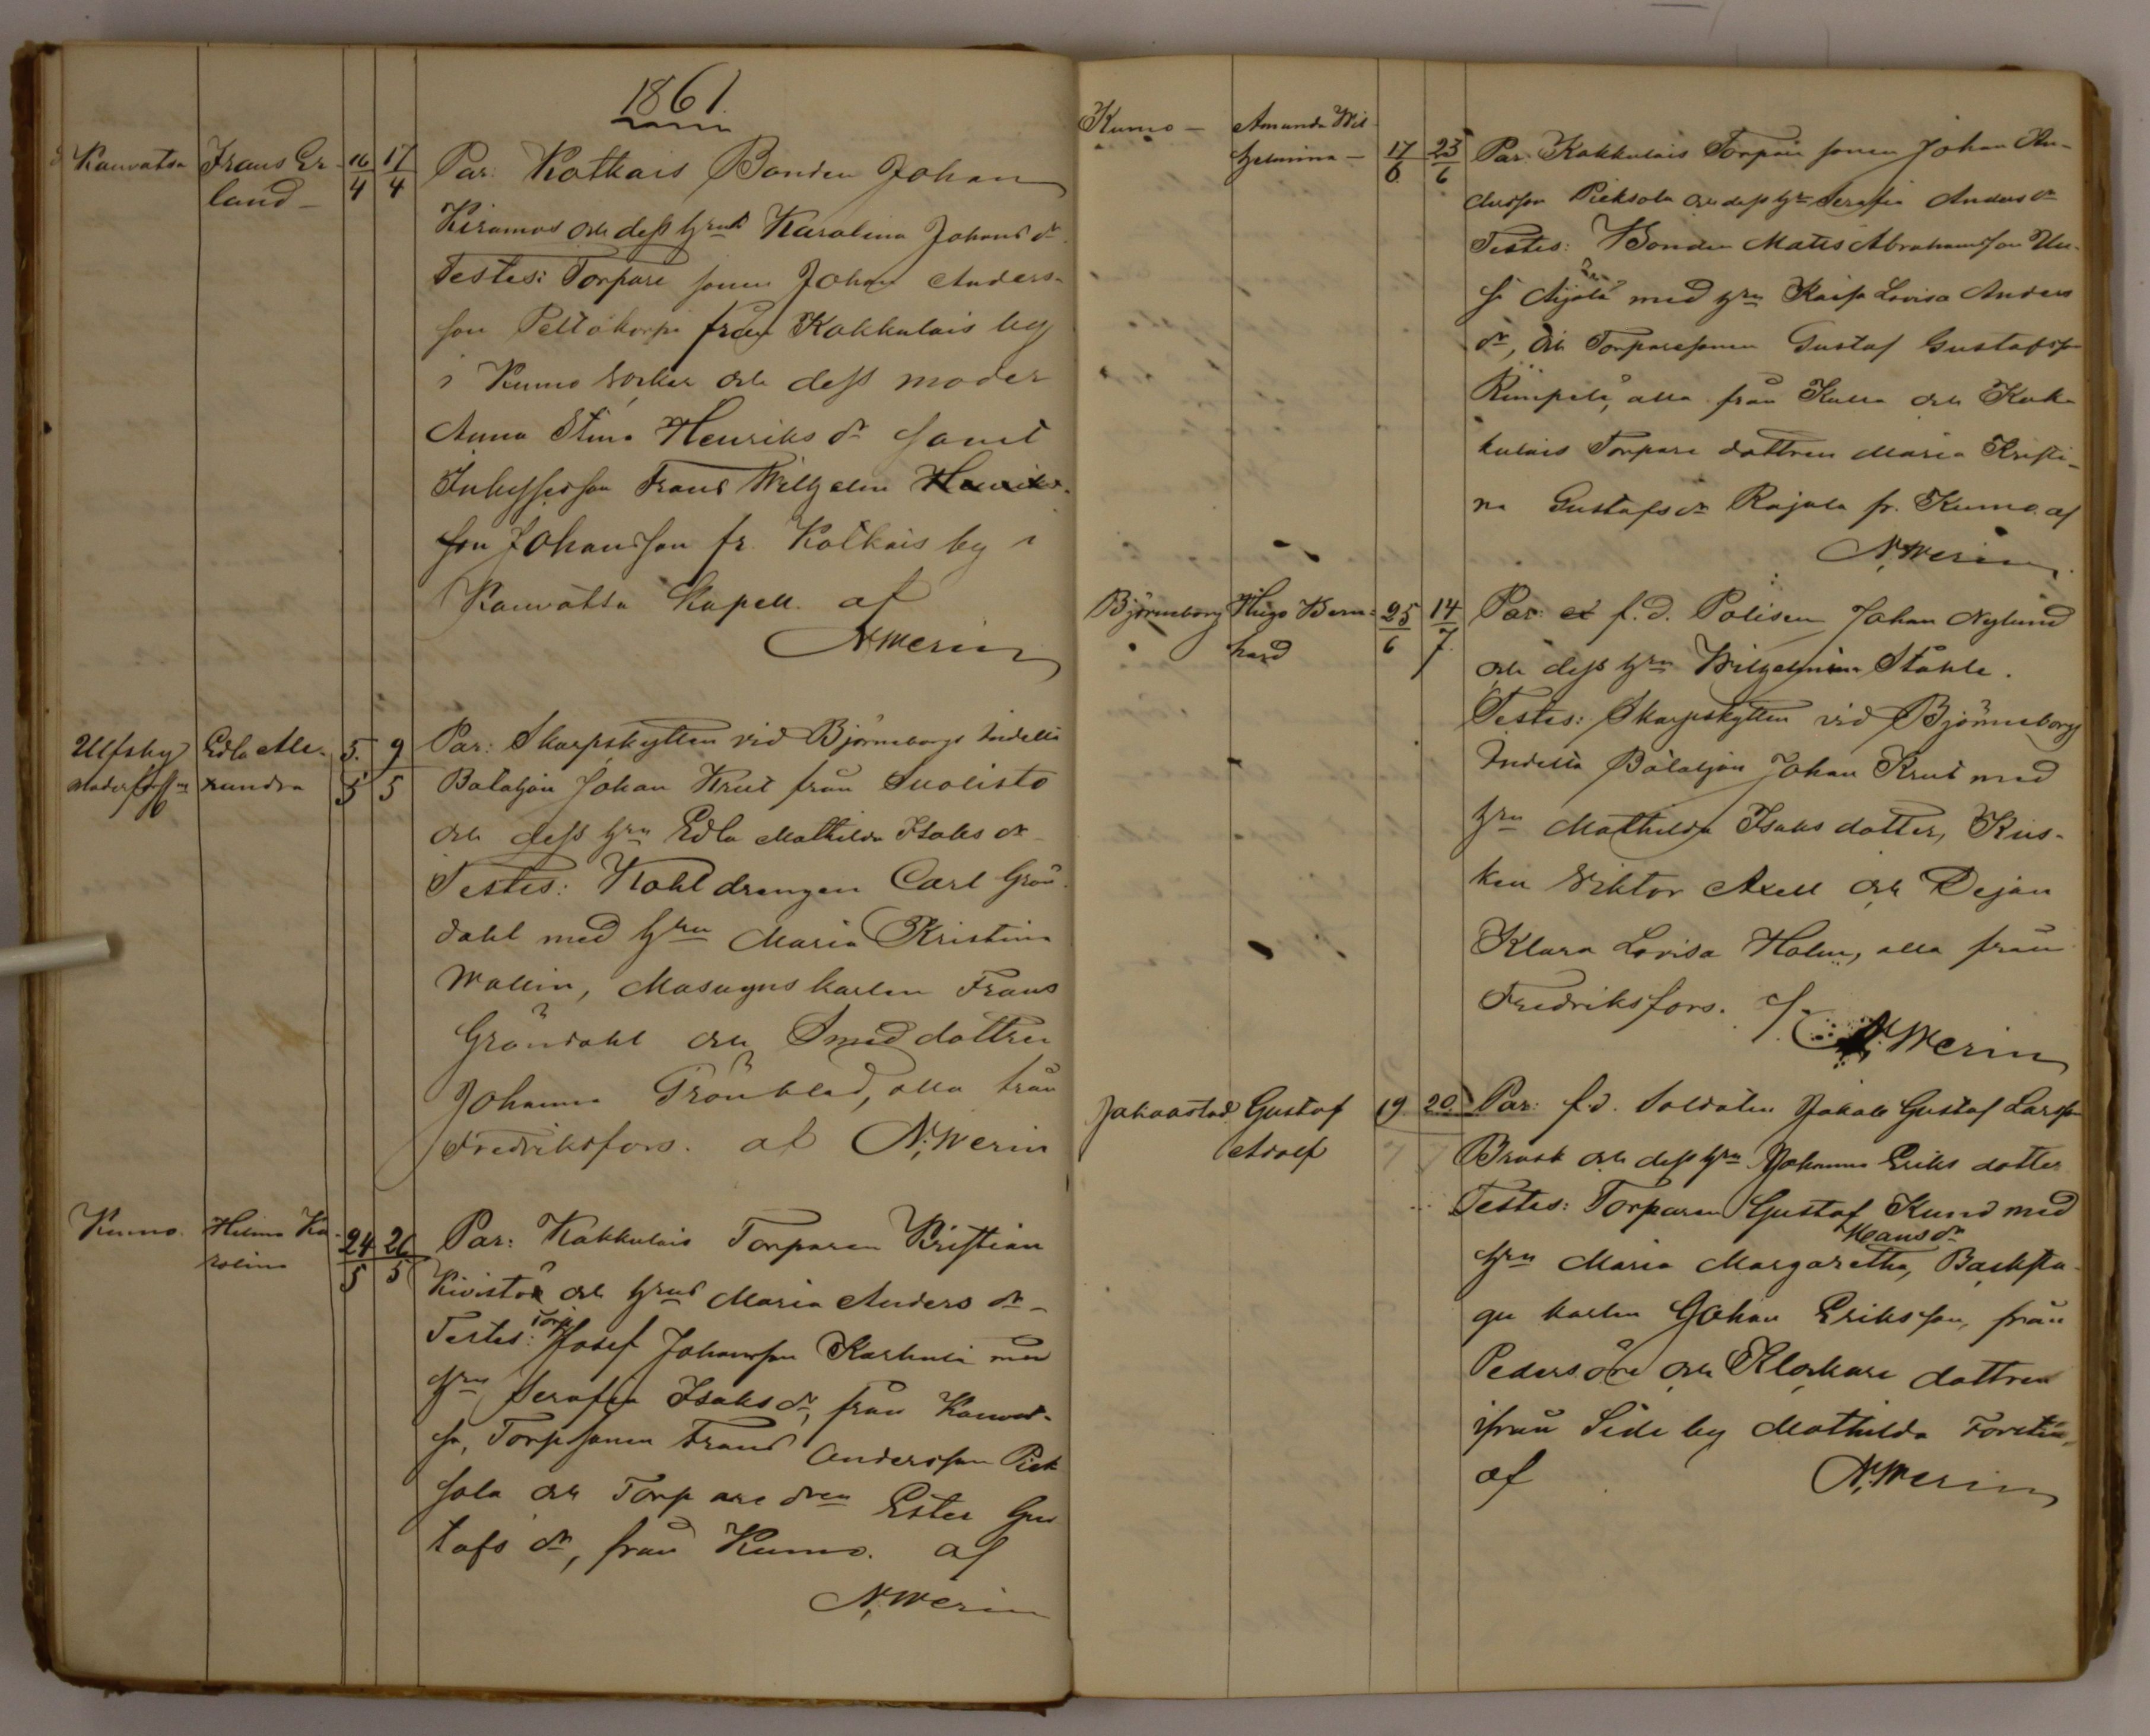 1861.
Kauvatsa Frans Er- 16/4 17/4 Par: Kotkais Bonden Johan
land -
Kiramos och dess hru Karolina Johans dr
Testes: Torpare sonen Johan Anders-
son Peltokorpi från Kakkulais by
i Kumo socken och dess moder
Anna Stina Henriks dr samt
Inhyses son Frans Wilhelm Henriks-
son Johansson fr. Kotkais by i
Kauvatsa Kapell. af
N. Werin
Ulfsby Edla Ale- 5/5 9/5 Par: Skarpskytten vid Björneborgs Indelta
xandra
Bataljon Johan Krut från Suolisto
och dess hru Edla Mathilda Isaks dr
Testes: Kohldrengen Carl Grön-
dahl med hru Maria Kristina
Wallin, Masugnskarlen Frans
Gröndahl och Smeddottren
Johanna Grönblad, alla från
Fredriksfors. af N. Werin
Kumo. Helena Ka- 24/5 26/5 Par: Kakkulais Torparen Kristian
rolina
Kivistö och hrus Maria Anders dr
Testes: Torp. Josef Johansson Karhula med
hru Serafia Isaks dr, från Kauvat-
sa, Torpsonen Frans Andersson Piek
sola och Torpare dren Ester Gus
tafs dr, från Kumo. af
N. Werin
Kumo - Amanda Wil-
helmina - 17/6 23/6 Par: Kakkulais Torpare sonen Johan An-
dersson Pieksola och dess hru Serafia Anders dr
Testes: Bonden Matts Abrahamsson
med hru Kaisa Lovisa Anders
dr, och Torparesonen Gustaf Gustafsson
Rimpelä, alla från Kulla och Kak-
kulais Torpare dottren Maria Kristi-
na Gustafs dr Rajala fr. Kumo af
N. Werin.
Björneborg Hugo Bern- 25/6 14/7 Par: f. d. Polisen Johan Nylund
hard
och dess hru Wilhelmina Ståhle.
Testes: Skarpskytten vid Björneborgs
Indelta Bataljon Johan Krut med
hru Mathilda Isaks dotter, Kus-
ken Viktor Axell och Dejan
Klara Lovisa Holm, alla från
Fredriksfors. af
N. Werin
Jakobstad Gustaf 19. 20. Par: f. d. Soldaten Jakob Gustaf Larsson
Adolf
Brask och dess hru Johanna Eriks dotter
Testes: Torparen Gustaf Kund med
Hans dr
hru Maria Margaretha, Backstu-
gu karlen Johan Eriksson, från
Pedersöre och Klockare dottren
ifrån Side by Mathilda
af N. Werin